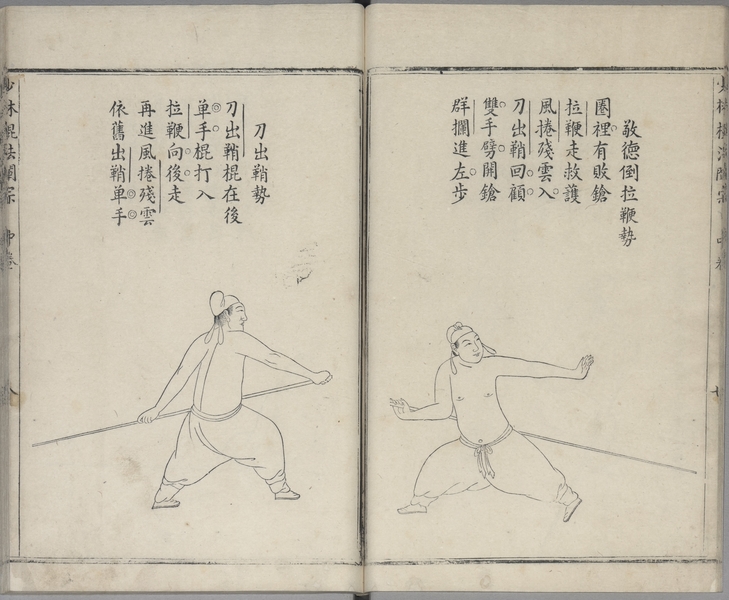 敬德倒拉鞭勢
圈裡有敗鎗
拉鞭走救護
風捲殘雲入
刀出鞘回顧
雙手劈開鎗
群攔進左步
刀出鞘勢
刀出鞘棍在後
單手棍打入
拉鞭向後走
再進風捲殘雲
依舊出鞘單手
少林棍法闡宗 中卷 八